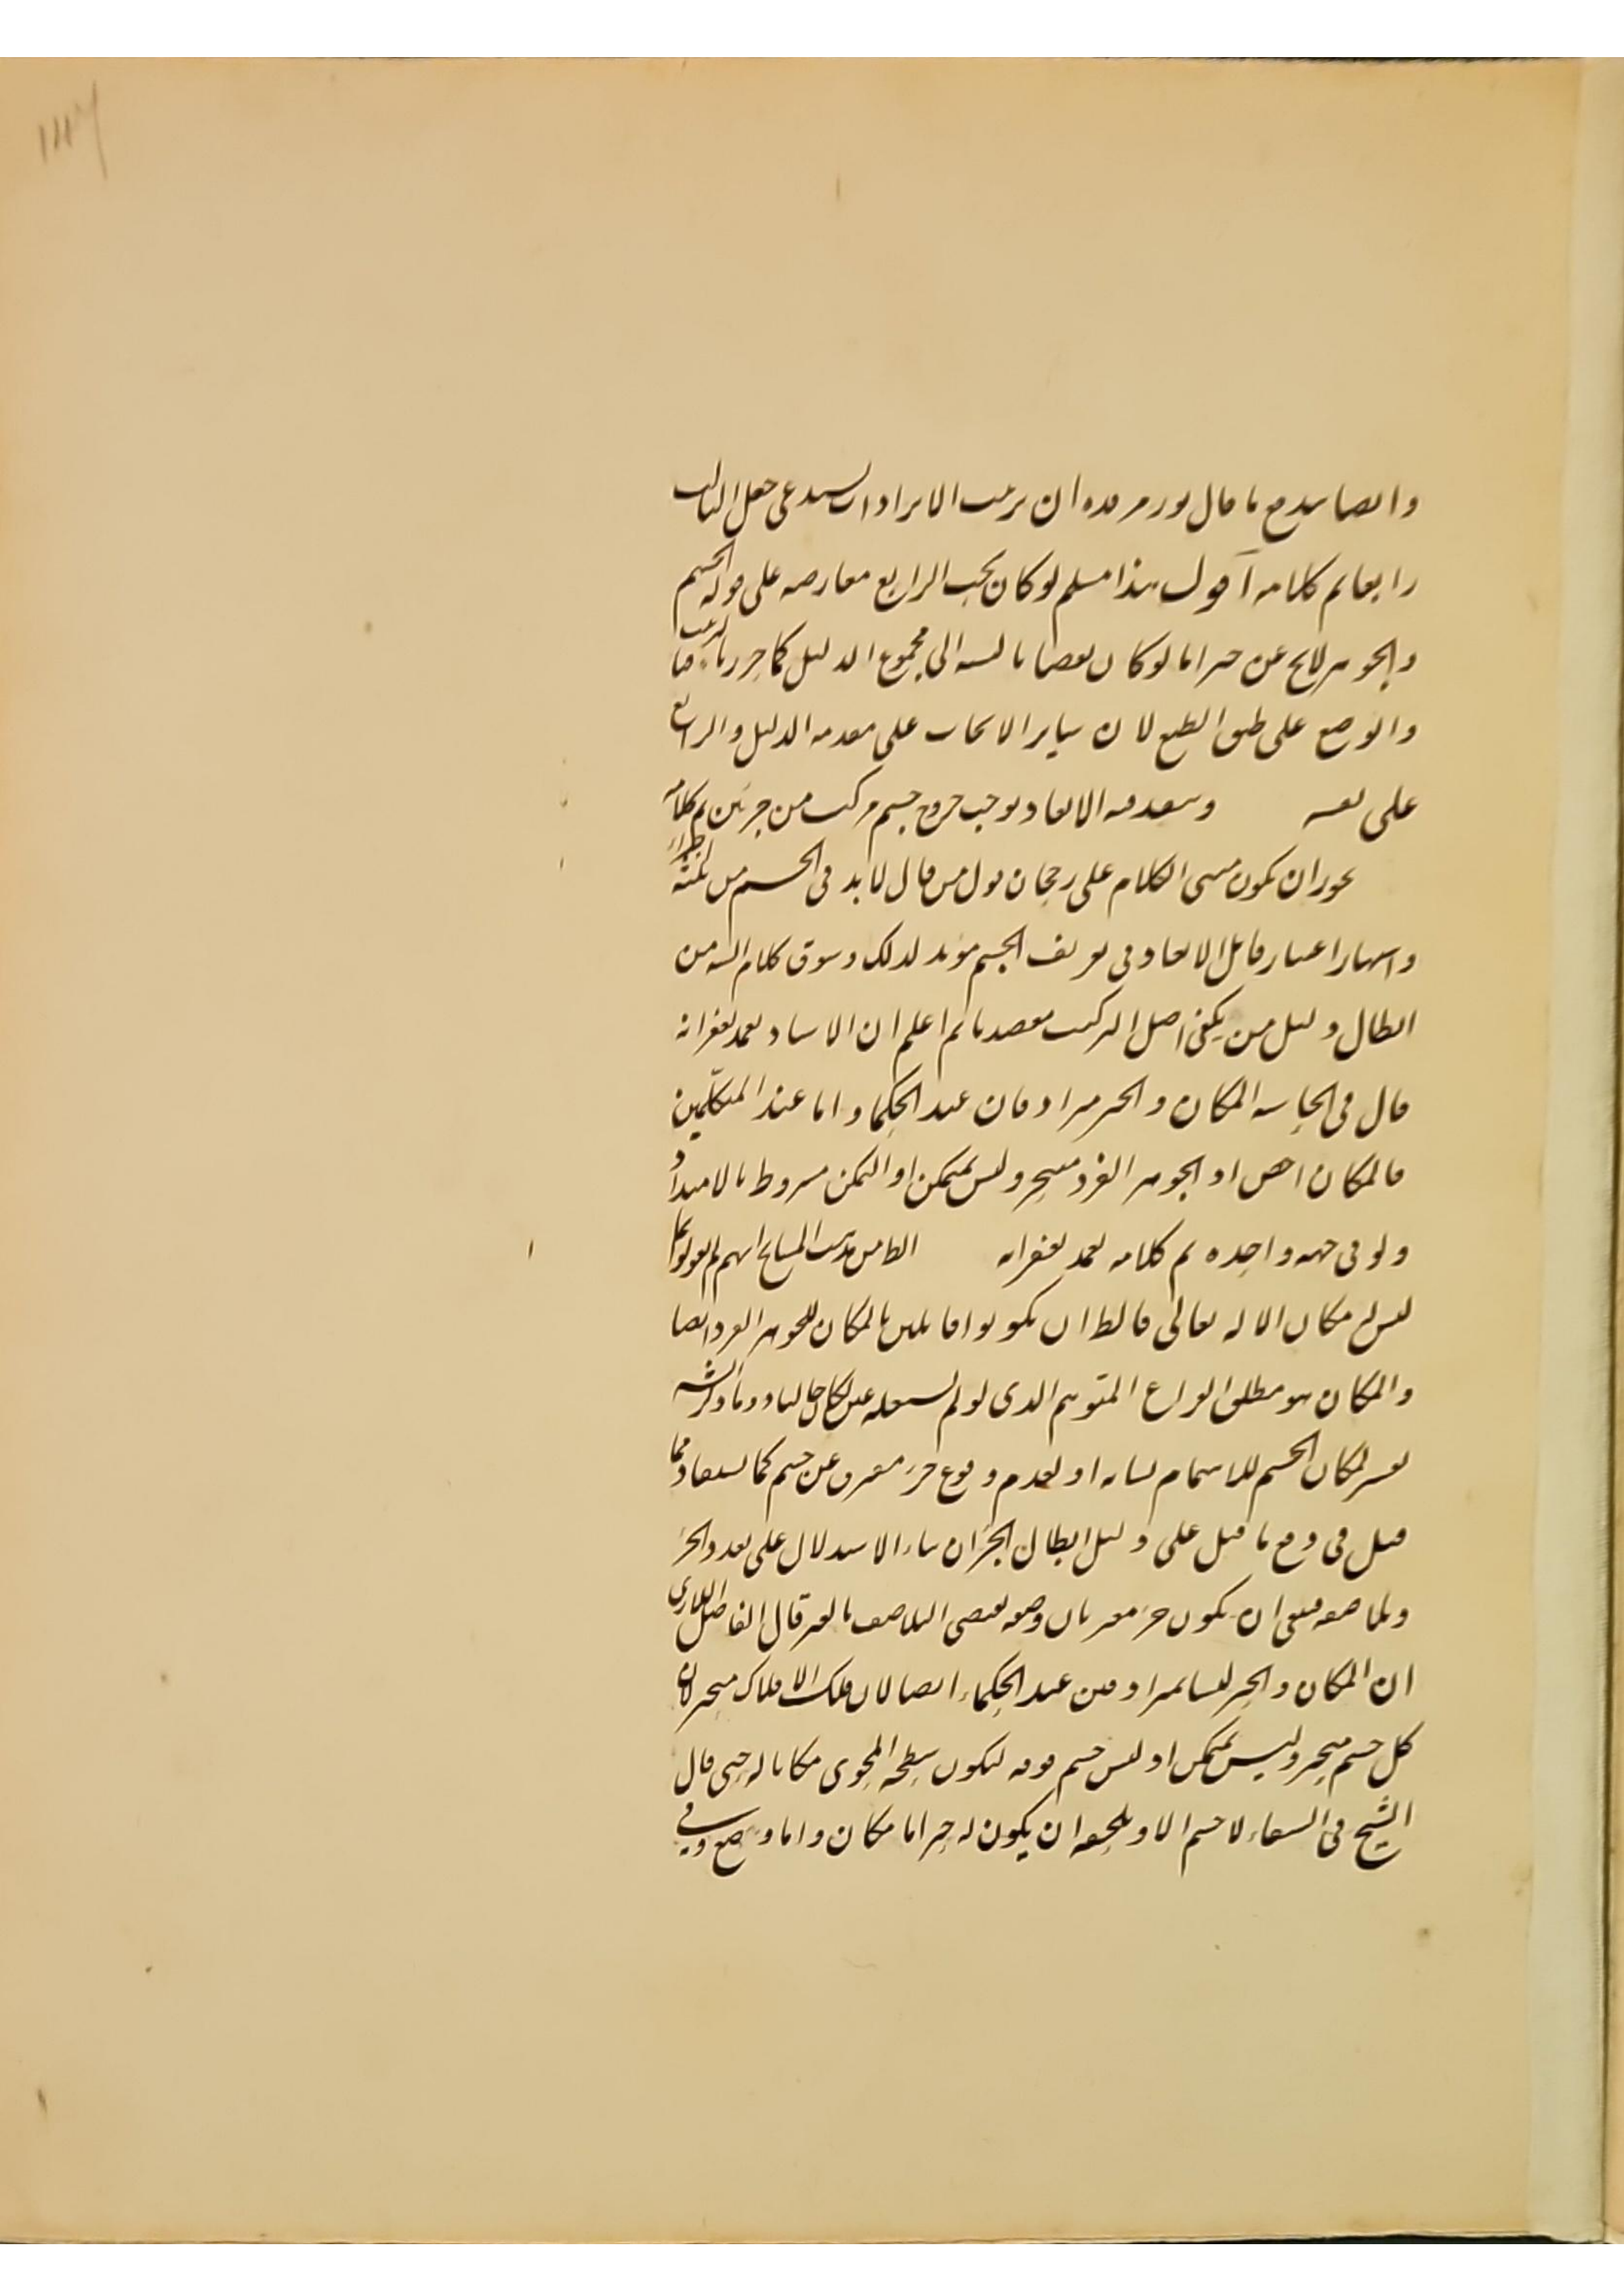 وايضا يندفع ما قال نور مرقده ان ترتيب الايرادات يستدعى جعل الثالث
رابعا تم كلامه اقول هذا مسلم لو كان بحث الرابع معارضه على قوله الجسم
والجوهر لا يخ عن حيز اما لو كان نقضا بالنسبه الى مجموع الدليل كما حررنا
والوضع على طبق الطبع لان ساير الابحاث على مقدمه الدليل والرابع
على نفسه وبتعدد الابعاد يوجب خروج جسم مركب من جزئين تم كلامه
يجوز ان يكون مبنى الكلام على رجحان قول من قال لا بد فى الجسم من ثلثة
واشتهار اعتبار قابل الابعاد فى تعريف الجسم مؤيد لذلك وسوق كلام الشه من
ابطال دليل من يكفى اصل التركيب مقصدنا ثم اعلم ان الاستاد تغمد بغفرانه
قال فى الحاشيه المكان والحيز مترادفان عند الحكماء واما عند المتكلمين
فالمكان اخص اذ الجوهر الفرد متحيز وليس بمتمكن اذ التمكن مشروط بالامتداد
ولو فى جهه واحده تم كلامه تغمد بغفرانه الظ من مذهب المشايخ انهم لم يقولوا بما
ليس له مكان الا له تعالى فالظ ان يكونوا قائلين بالمكان للجوهر الفرد ايضا
والمكان هو مطلق الفراغ المتوهم الذى لو لم يشغله عين لكان خاليا وما ذكر الشه
تفسير لمكان الجسم للاهتمام بشانه او لعدم وقوع حيز مفرق عن جسم كما يستفاد مما
قيل فى دفع ما قيل على دليل ابطال الجزء ان بناء الاستدلال على تعدد الجزء
قال الفاضل اللارى
ان المكان والحيز ليسا بمترادفين عند الحكماء ايضا لان فلك الافلاك متحيز لان
كل جسم متحيز وليس بمتمكن اذ ليس جسم فوقه ليكون سطحه المحوى مكانا له حتى قال
الشيخ فى الشفاء لا جسم الا ويلحقه ان يكون له حيز اما مكان واما وضع وفى